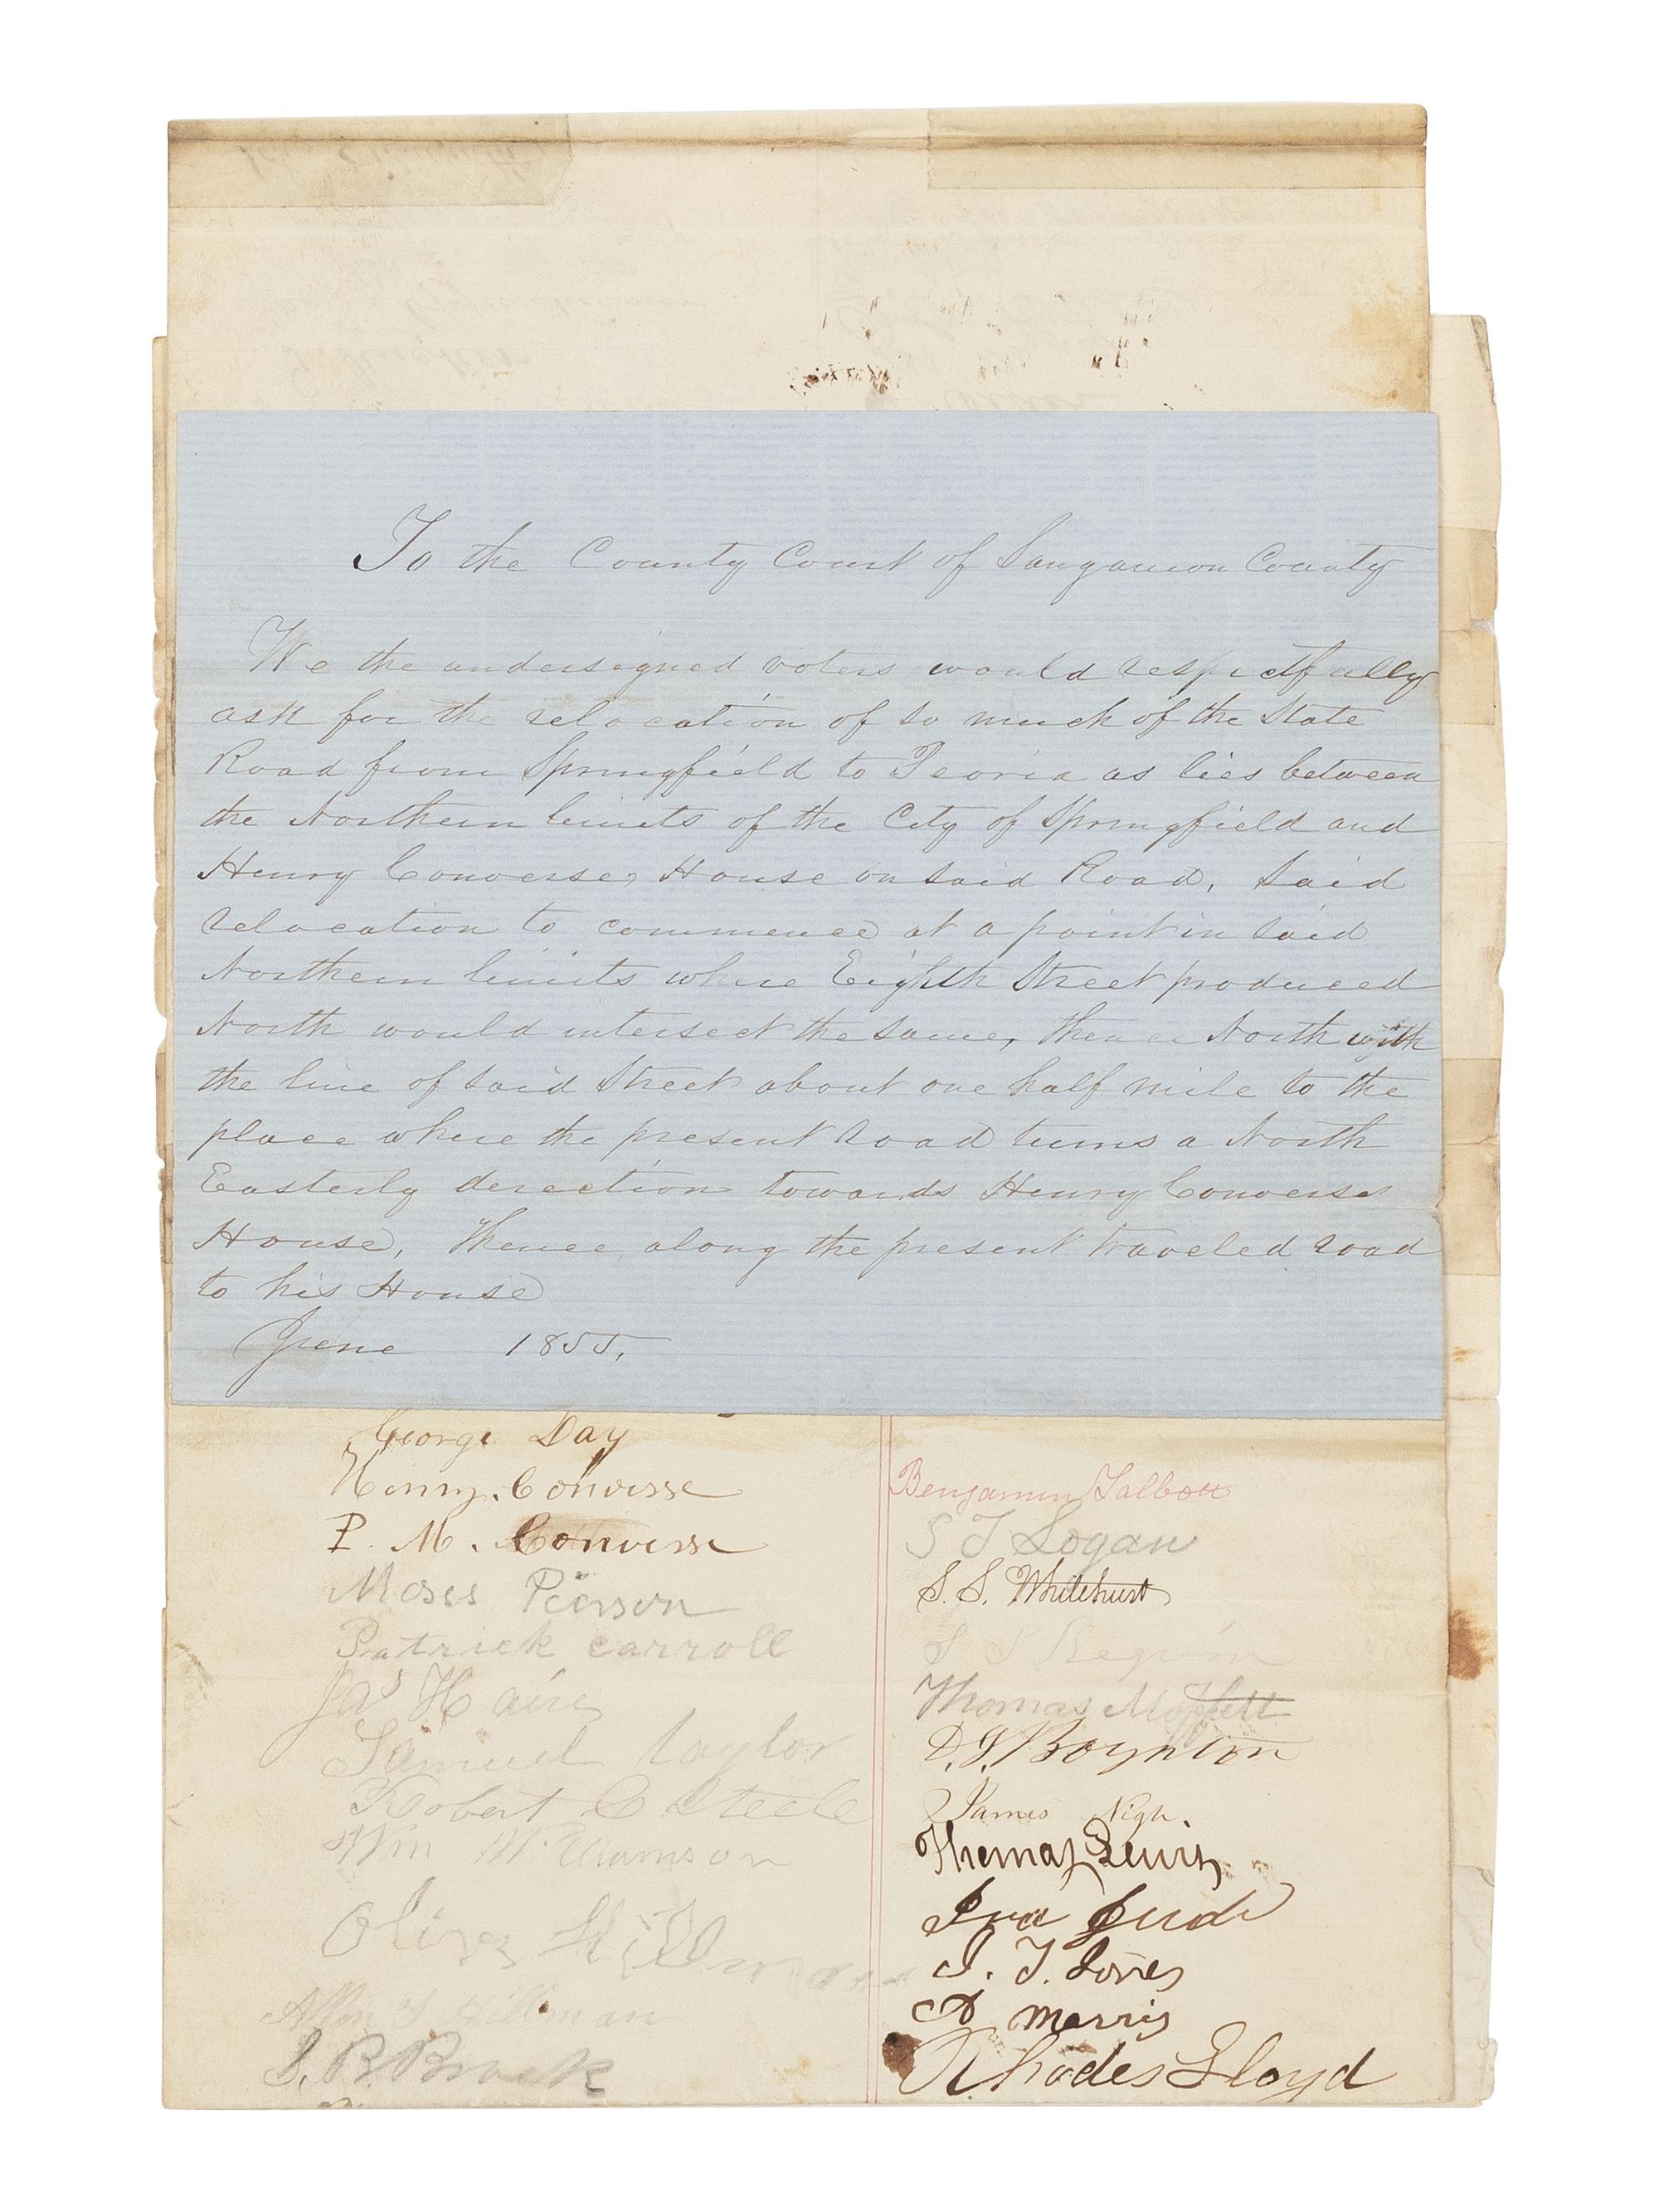 To the County Court of Sangamon County
We the undersigned voters would respectfully
ask for the relocation of so much of the State
Road from Springfield to Peoria as lies between
the Northern limits of the City of Springfield and
Henry Converses House on said Road, Said
relocation to commence at a point in said
Northern limits where Eighth Street produced
North would intersect the same, thence North with
the line of said Street about one half mile to the
place where the present road turns a North
Easterly derection towards Henry Converses
House, Thence along the present traveled road
to his House
June 1855.
George Day
Henry. Converse
P. M. Converse
Moses Pierson
Patrick Carroll
Jas Haire
Samuel Taylor
Robert C Steele
Wm Williamson
Oliver Hillman
Hillman
S. B. Brock
Benjamin Talbott
S T Logan
S. S. Whitehurst
S S
Thomas Moffett
D. S. Boynton
James Nigh.
Thomas Lewis
Ira Jude
J. T. Jones
A Morris
Rhodes Lloyd